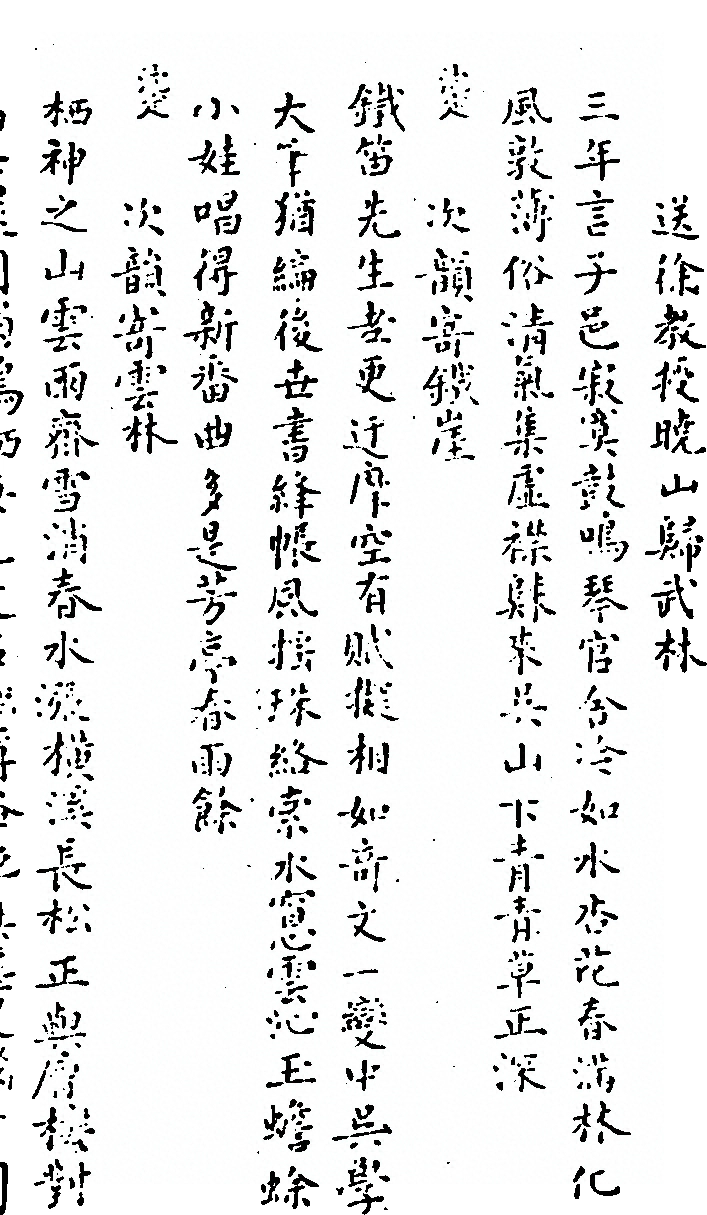 送徐教授曉山歸武林
三年言子邑寂寞鼓鳴琴官舍冷如水杏花春滿林化
風敦薄俗清氣集虛襟歸來吳山下青青草正深
次韻寄鐵崖
鐵笛先生老更迂摩空有賦擬相如奇文一變中吳學
大筆猶編後世書絳帳風摇珠絡索水窻雲沁玉蟾蜍
小娃唱得新番曲多是芳亭春雨餘
次韻寄雲林
栖神之山雲雨齋雪消春水漲橫溪長松正與唐橋對